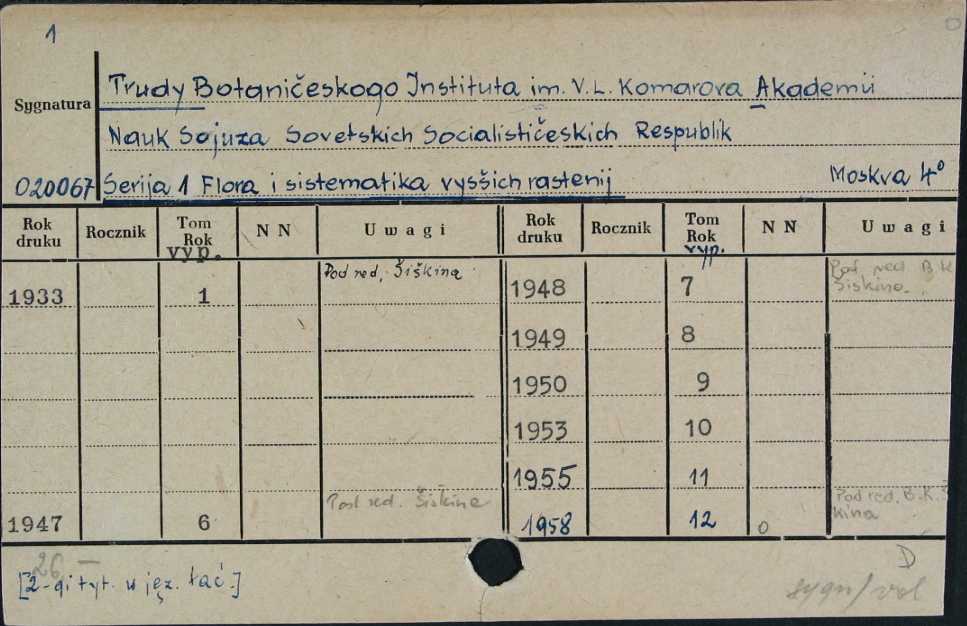 1
Sygnatura
Trudy Botaničeskogo Instituta im. V.L. Komarova Akademii
Nauk Sojuza Sovetskich Socialističeskich Respublik
020067 Serija 1 Flora i sistematika vysšich rastenij Moskva 4°
Rok druku Rocznik Tom Rok vyp. NN Uwagi Rok druku Rocznik Tom Rok vyp. NN Uwagi
1933 1 Pod red. Šiškina 1948 7 Pod red B.K Šiškina.
1949 8
1950 9
1953 10
1955 11
1947 6 Pod red. Šiškina 1958 12 0 Pod red. B.K. Š kina
26 – D
[2-gi tyt. w jęz. łać.]
sygn/